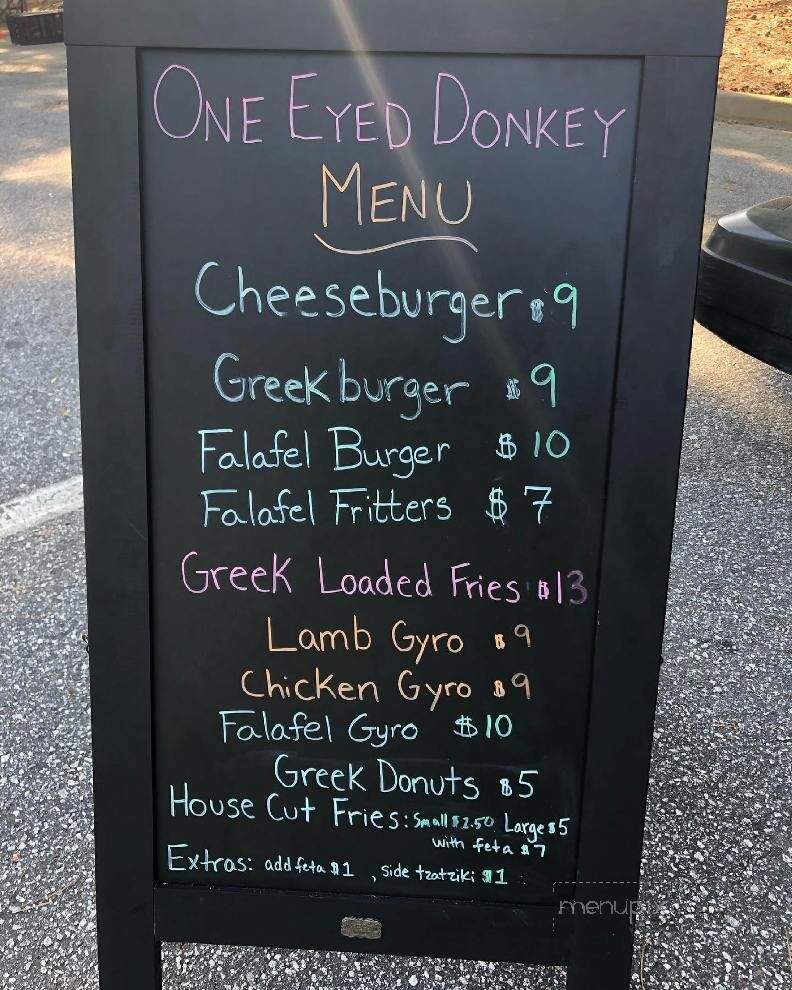 ONE EYED DONKEY
MENU
Cheeseburger $9
Greek burger $9
Falafel Burger $10
Falafel Fritters $7
Greek Loaded Fries $13
Lamb Gyro $9
Chicken Gyro $9
Falafel Gyro $10
Greek Donuts $5
House Cut Fries: Small $2.50 Large $5
with feta $7
Extras: add feta $1, side tzatziki $1